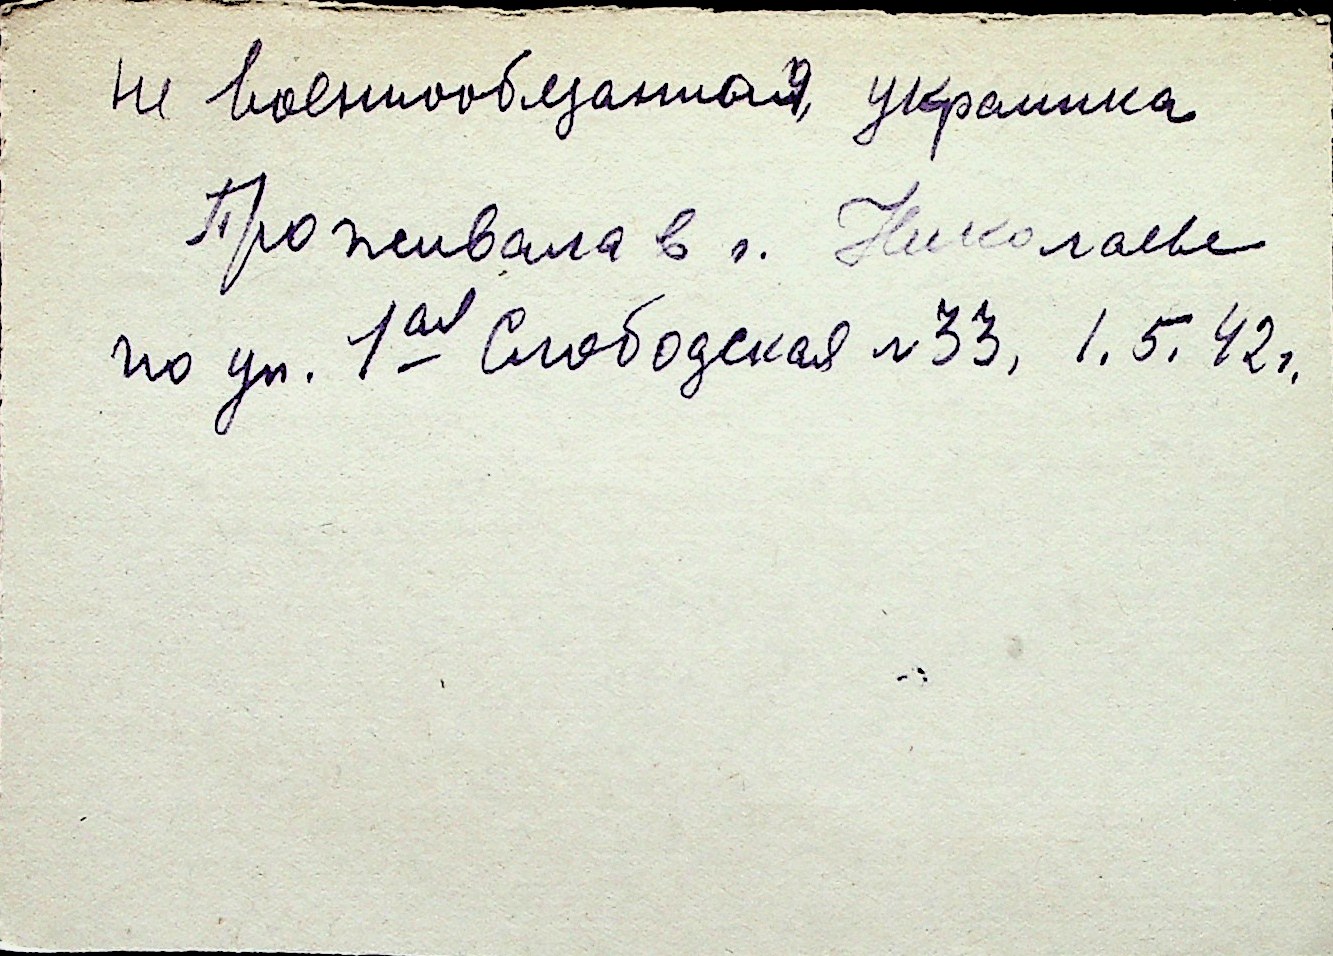 не военнообязанная, украинка
Проживала в г. Николаеве
по ул. 1ая Слободская №33, 1.5.42г.